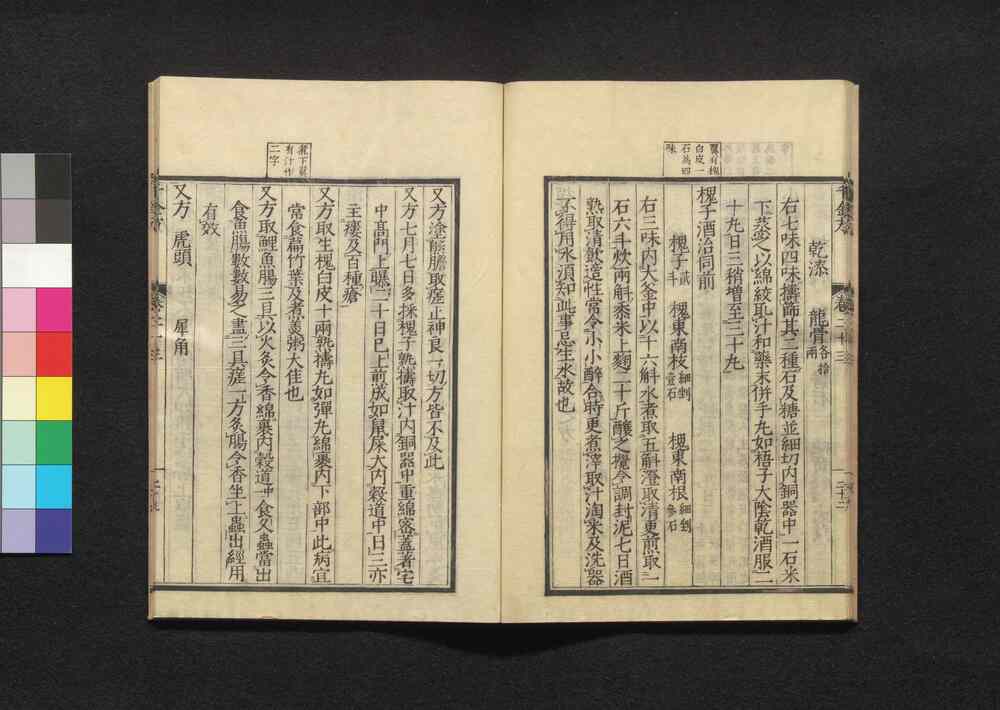 龔有槐
白皮一
石為四
味
乾漆　龍骨各拾兩
右七味四味擣篩其二種石及糖並細切内銅器中一石米
下蒸之以綿絞取汁和藥末併手丸如梧子大陰乾酒服二
十丸日三稍增至三十丸
槐子酒治同前
槐子貳斗　槐東南枝細剉壹石　槐東南根細剉參石
右三味内大釜中以十六斛水煮取五斛澄取清更煎取一
石六斗炊兩斛黍米上麴二十斤釀之攪令調封泥七日酒
熟取清飲適性常令小小醉合時更煮滓取汁淘米及洗器
不得用水須知此事忌生水故也
下
有汁作
二字
又方塗熊膽取瘥止神良一切方皆不及此
又方七月七日多採槐子熟擣取汁内銅器中重綿密蓋著宅
中高門上曝二十日已上煎成如鼠屎大内穀道中日三亦
主瘻及百種瘡
又方取生槐白皮十兩熟擣丸如彈丸綿裹内下部中此病宜
常食萹竹葉及煮羹粥大佳也
又方取鯉魚腸三具以火炙令香綿裹内穀道中一食久蟲當出
食畜腸數數易之盡三具瘥一方炙腸令香坐上蟲出經用
有效
又方　虎頭　犀角